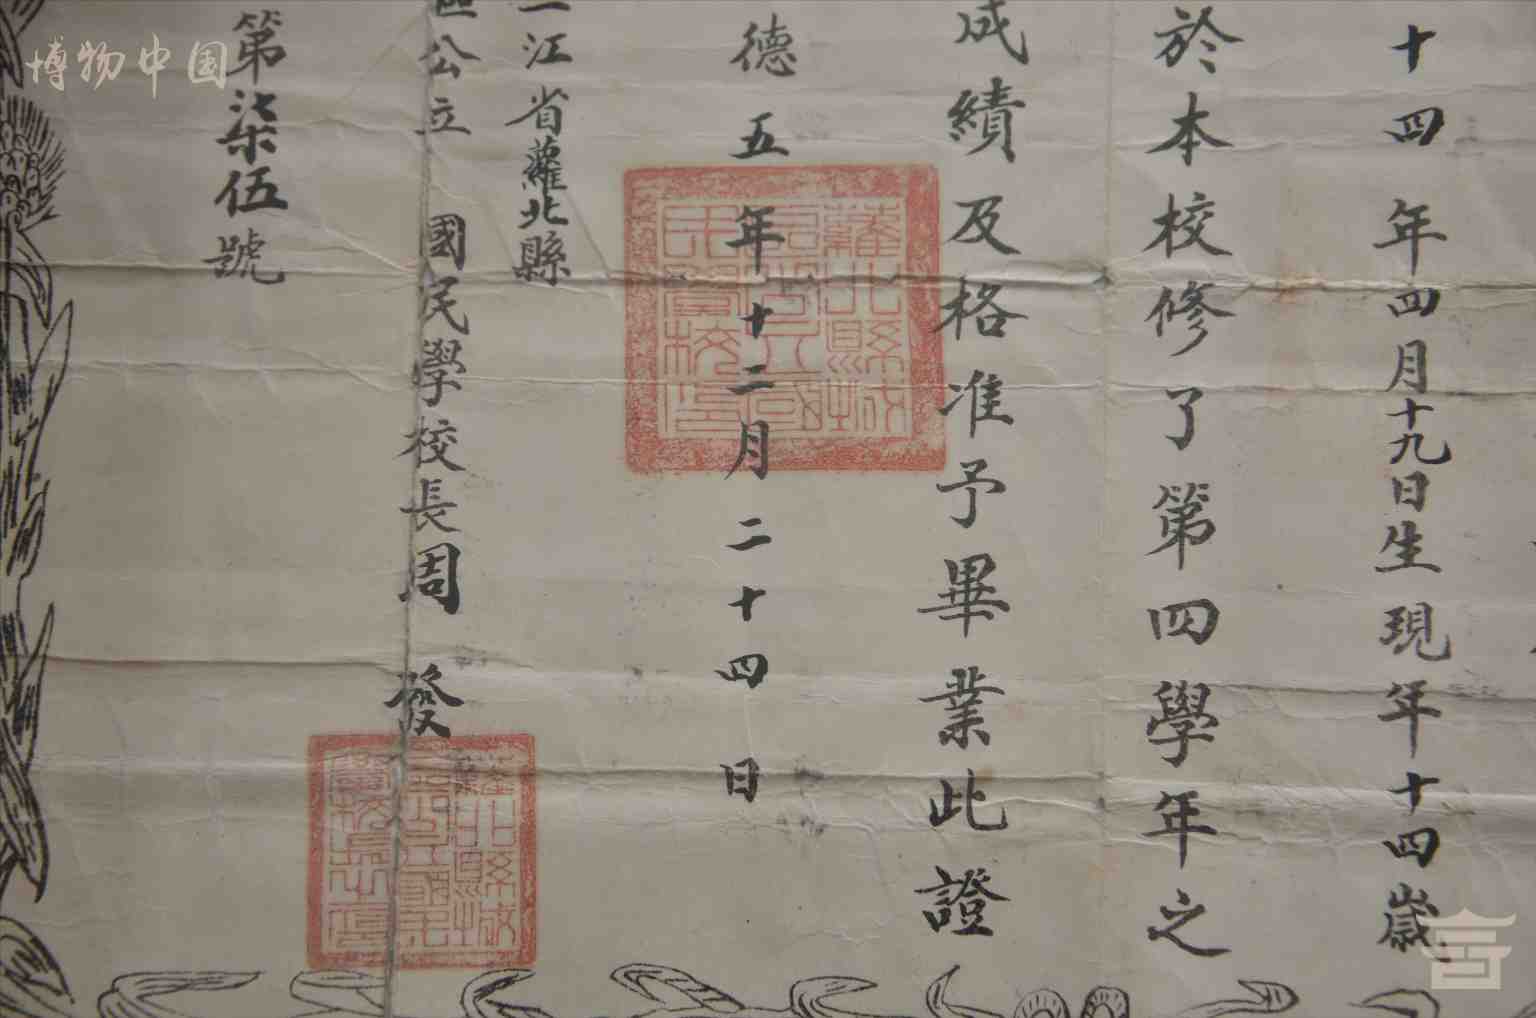 十四年四月十九日生現年十四歲
於本校修了第四學年之
成績及格准予畢業此證
德五年十二月二十四日
江省蘿北縣
公立國民學校長周發
第柒伍號
博物中国